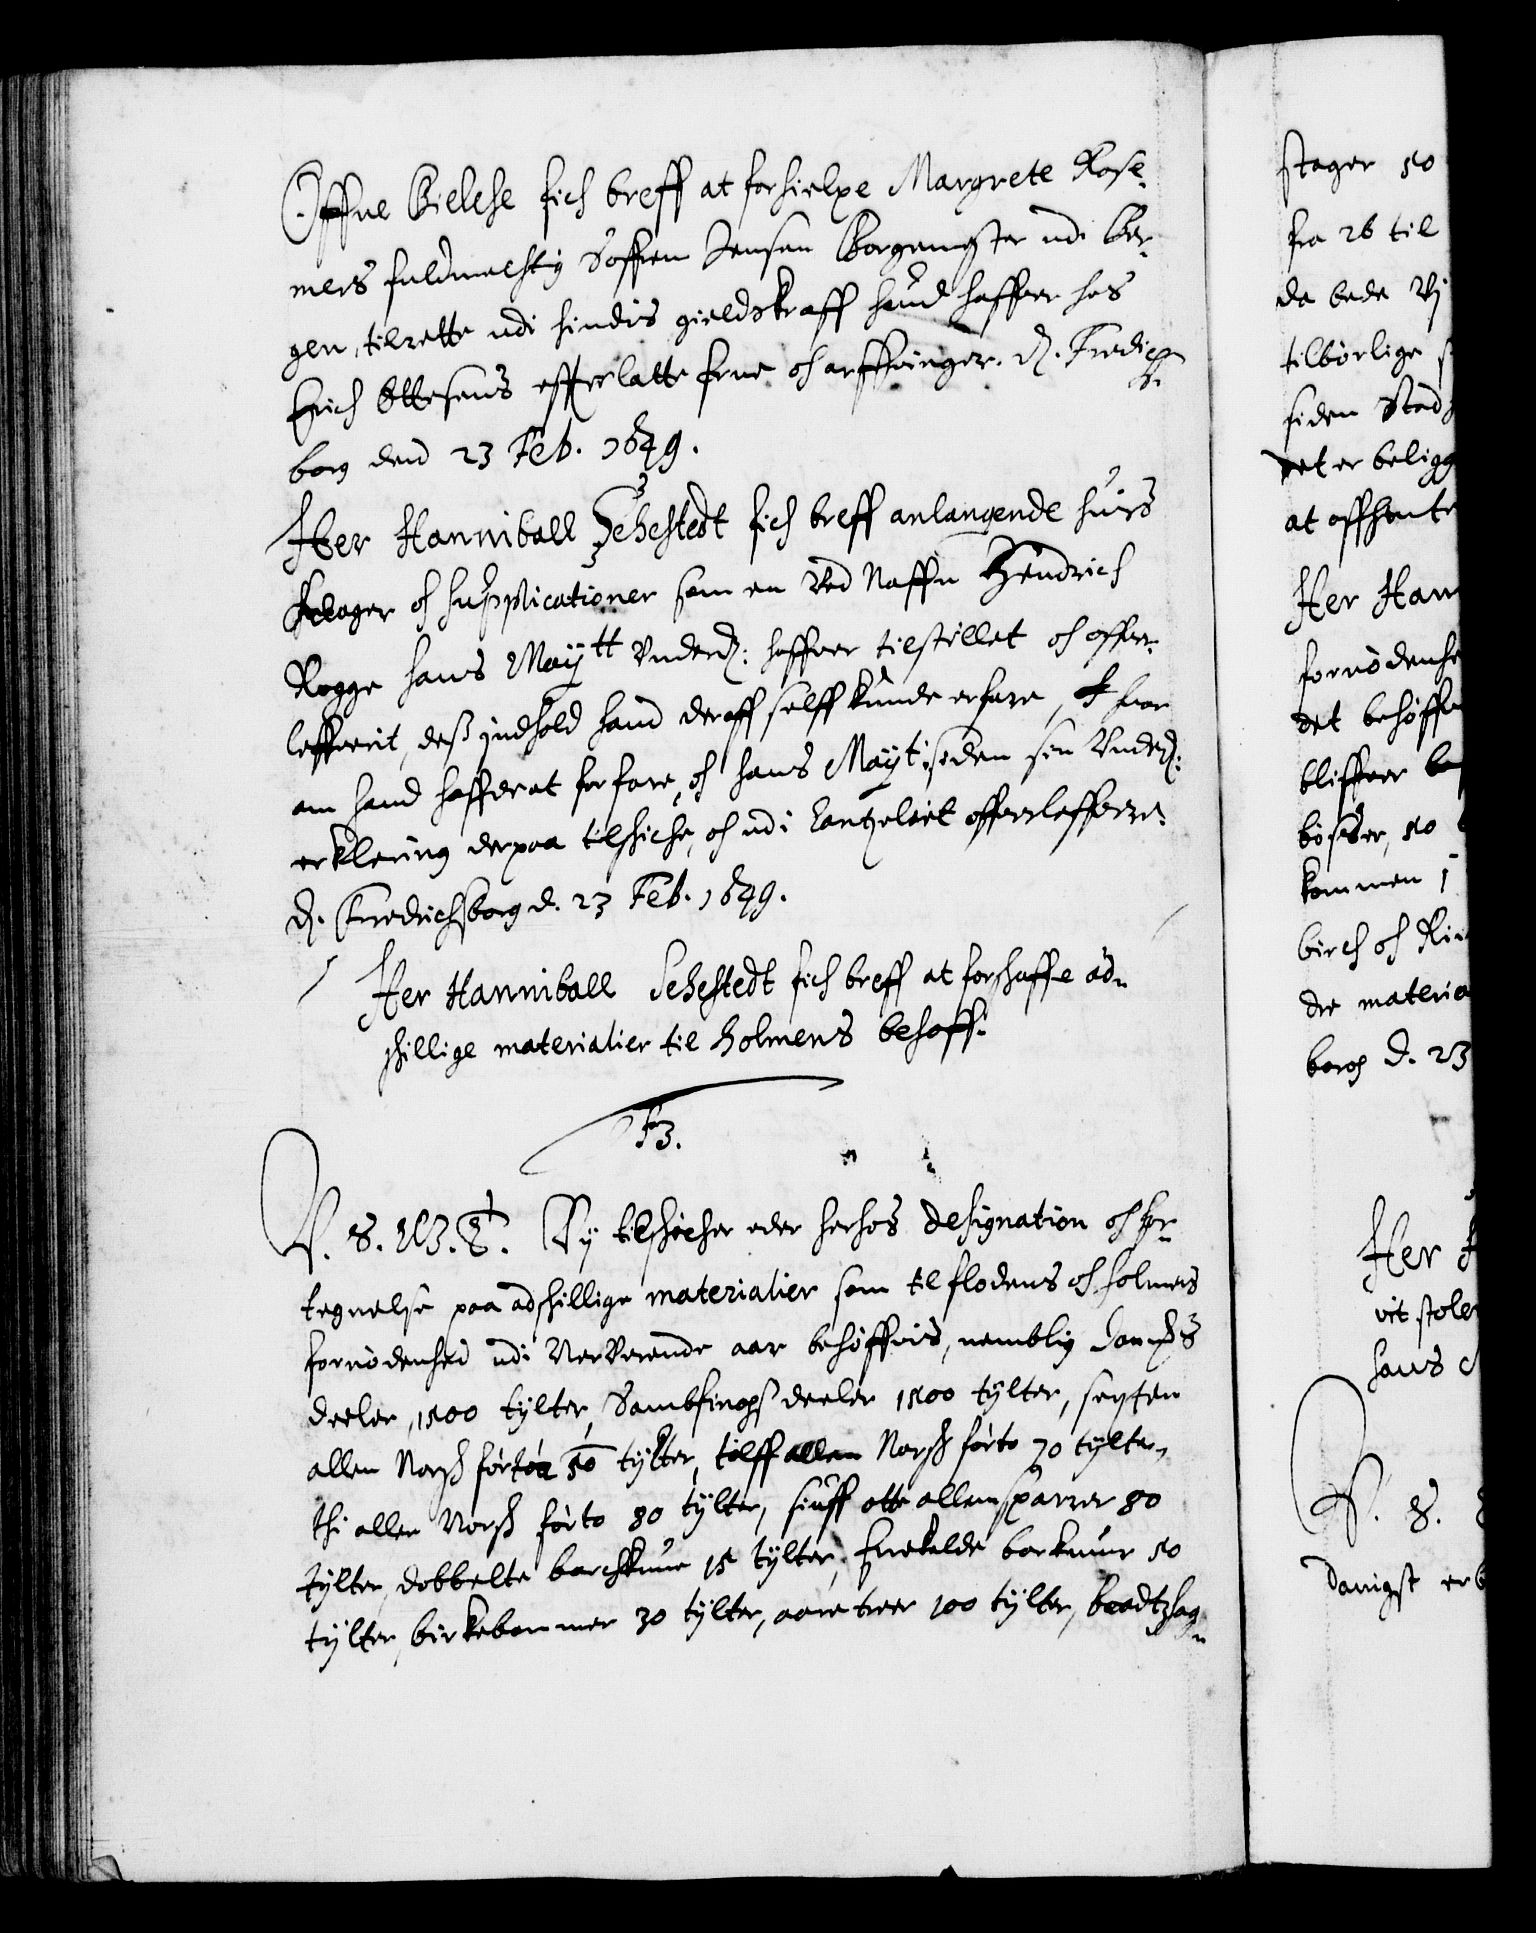 Offue Bielche fich breff at forhielpe Margrete Rose¬
mers fuldmechtig Søffren Jensen Borgemester udi Ber¬
gen, tilrette udi hindis gieldskraff hand haffuer hos
Erich Ottesens effterlatte frue och arffuinger. Dt. Fredichs¬
borg dend 23 Feb. 1649.
Her Hanniball Sehestedt fich breff anlangende huis
klager och supplicationer som en Ved Naffn Hendrich
Rogge hans Maytt Underd: haffuer tilstillet och offuer¬
leffuerit, dess indhold hand deraff self kunde erfare, huor
om hand haffuer at forfare, och hans Mayt siden sin Underd:
erklering derpaa tilschiche, och udi Cantzeliet offuerleffuere.
Dt. Fredrichsborg d. 23 Feb. 1649.
Her Hanniball Sehestedt fich breff at forschaffe ad¬
schillige materialier til Holmens behoff.
F3.
V. S. W. G. T. Vy tilschicher eder herhos designation och for¬
tegnelse paa adschillige materialier som til flodens och holmens
fornødenhed udi Nerverende aar behøffuis, nemblig
deeler, 1500 tylter, deeler 1500 tylter, seyten
allen Norsk førto 50 tylter, tolff allen Norsk førto 70 tylter,
thi allen Norsk førto 80 tylter, siuff otte allens sparrer 80
tylter, dobbelte barchkune 15 tylter, Enckelde barkuur 50
tylter, birkebommer 30 tylter, aare treer 100 tylter, baadtzhag¬
stager 50
fra 26 til
da bede Vj
tilbørlige
siden Stad
det er beligg
at affhente
Her Han
fornødenhe
det behøffu
bliffuer
bøsser, 50
kommen
birch och
der materia
borg d. 23
Her
vit stole
hans
V. S.
danigst erb